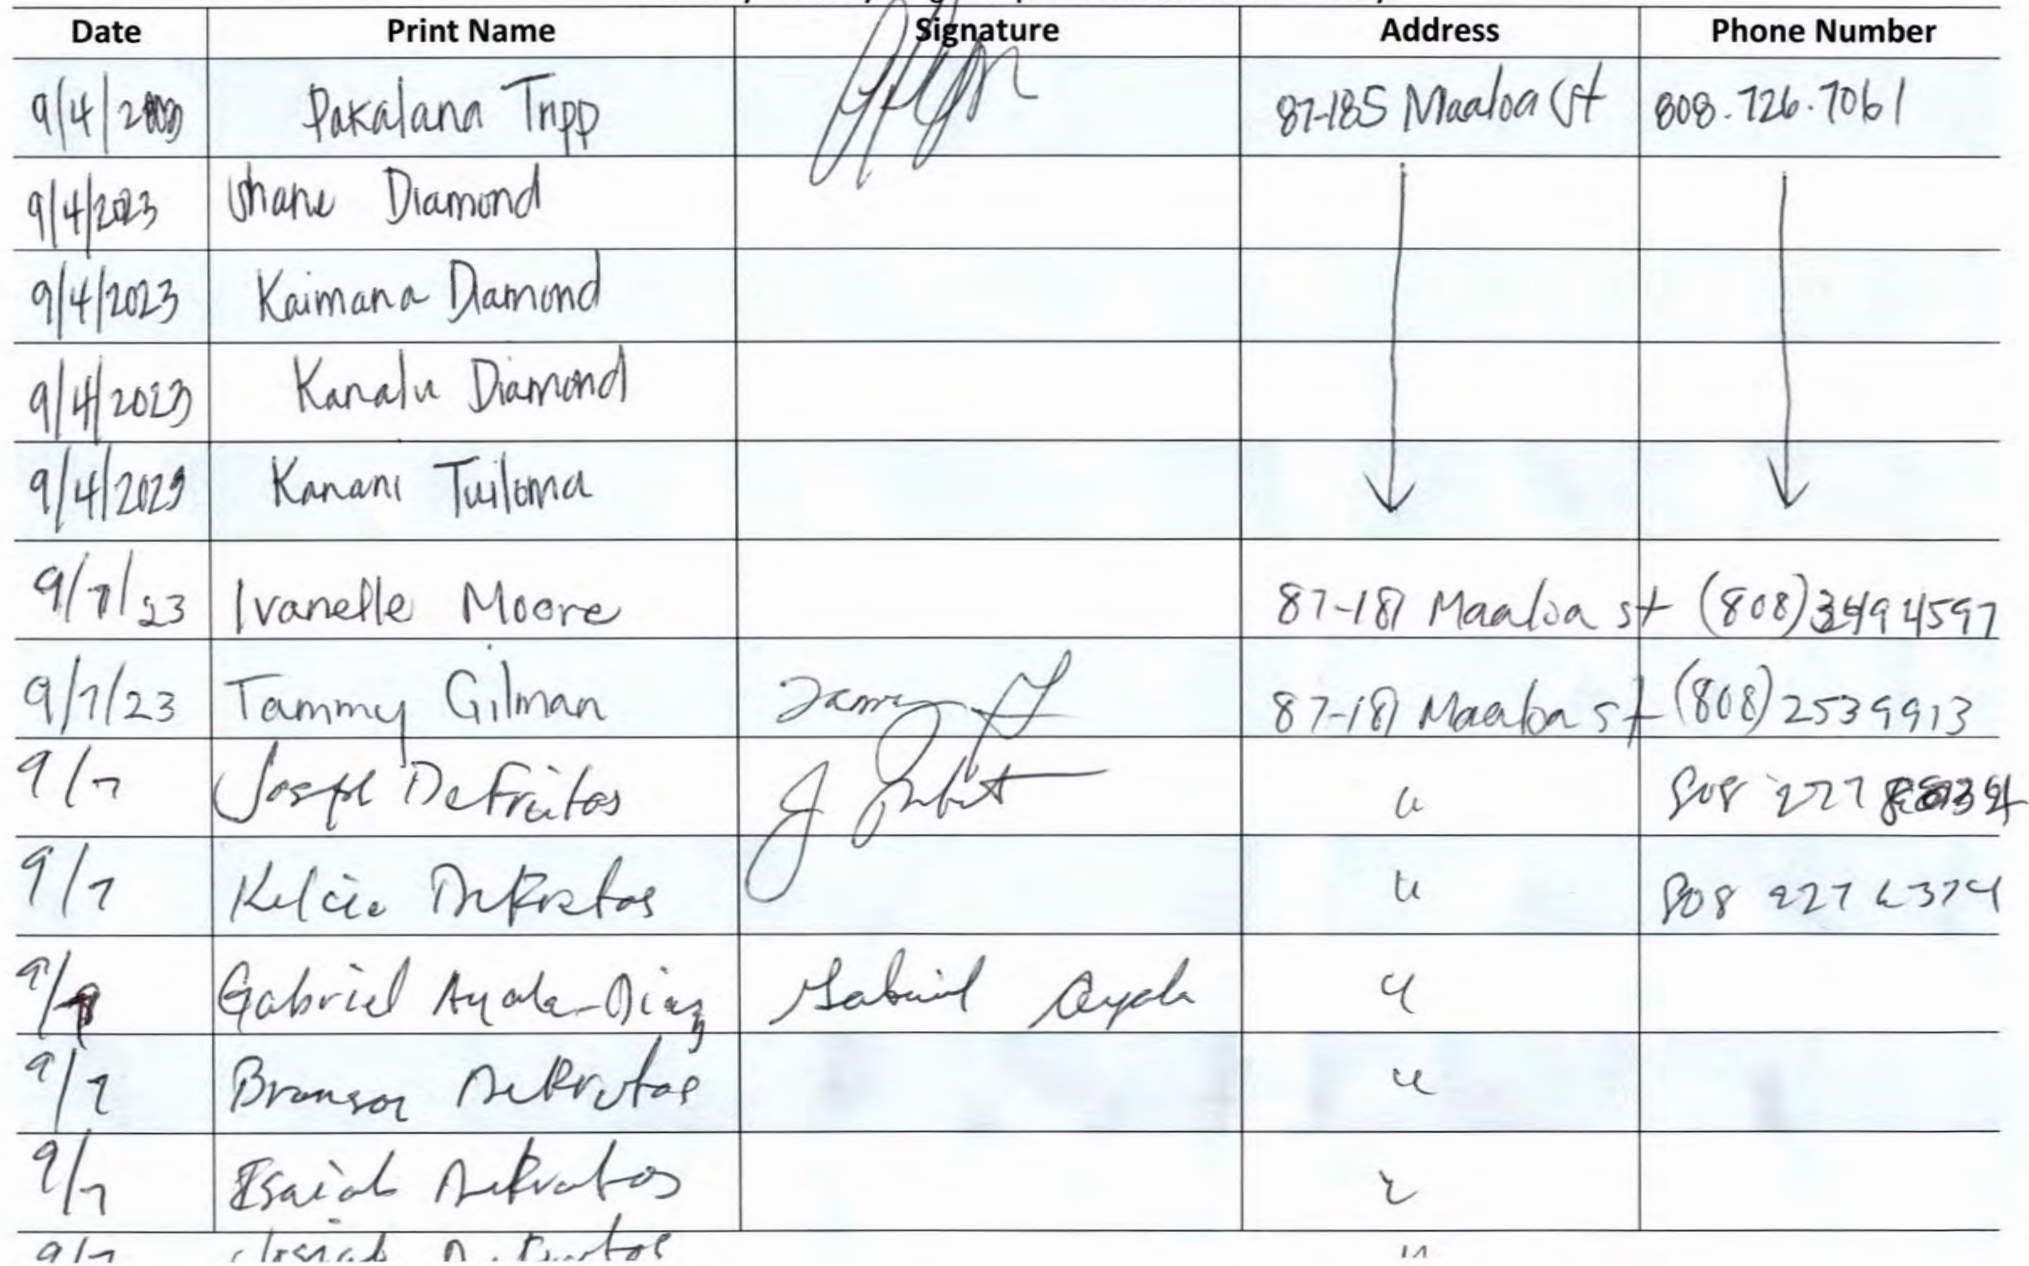 Date Print Name Signature Address Phone Number
9/4/2023 Pakalana Tripp 87-185 Maaloa St 808.726.7061
9/4/2023 Shane Diamond
9/4/2023 Kaimana Diamond
9/4/2023 Kanalu Diamond
9/4/2023 Kanani Tuiloma
9/7/23 Ivanelle Moore 87-181 Maaloa st (808)3494597
9/7/23 Tammy Gilman Tammy G 87-181 Maaloa st (808)2539913
9/7 Joseph DeFreitas " 808 227
9/7 Kelcie DeFreitas " 808 227 6374
9/7 Gabriel Ayala-Diaz Gabriel Ayala "
9/7 Branson DeFreitas "
9/7 Isaiah DeFreitas "
9/7 "